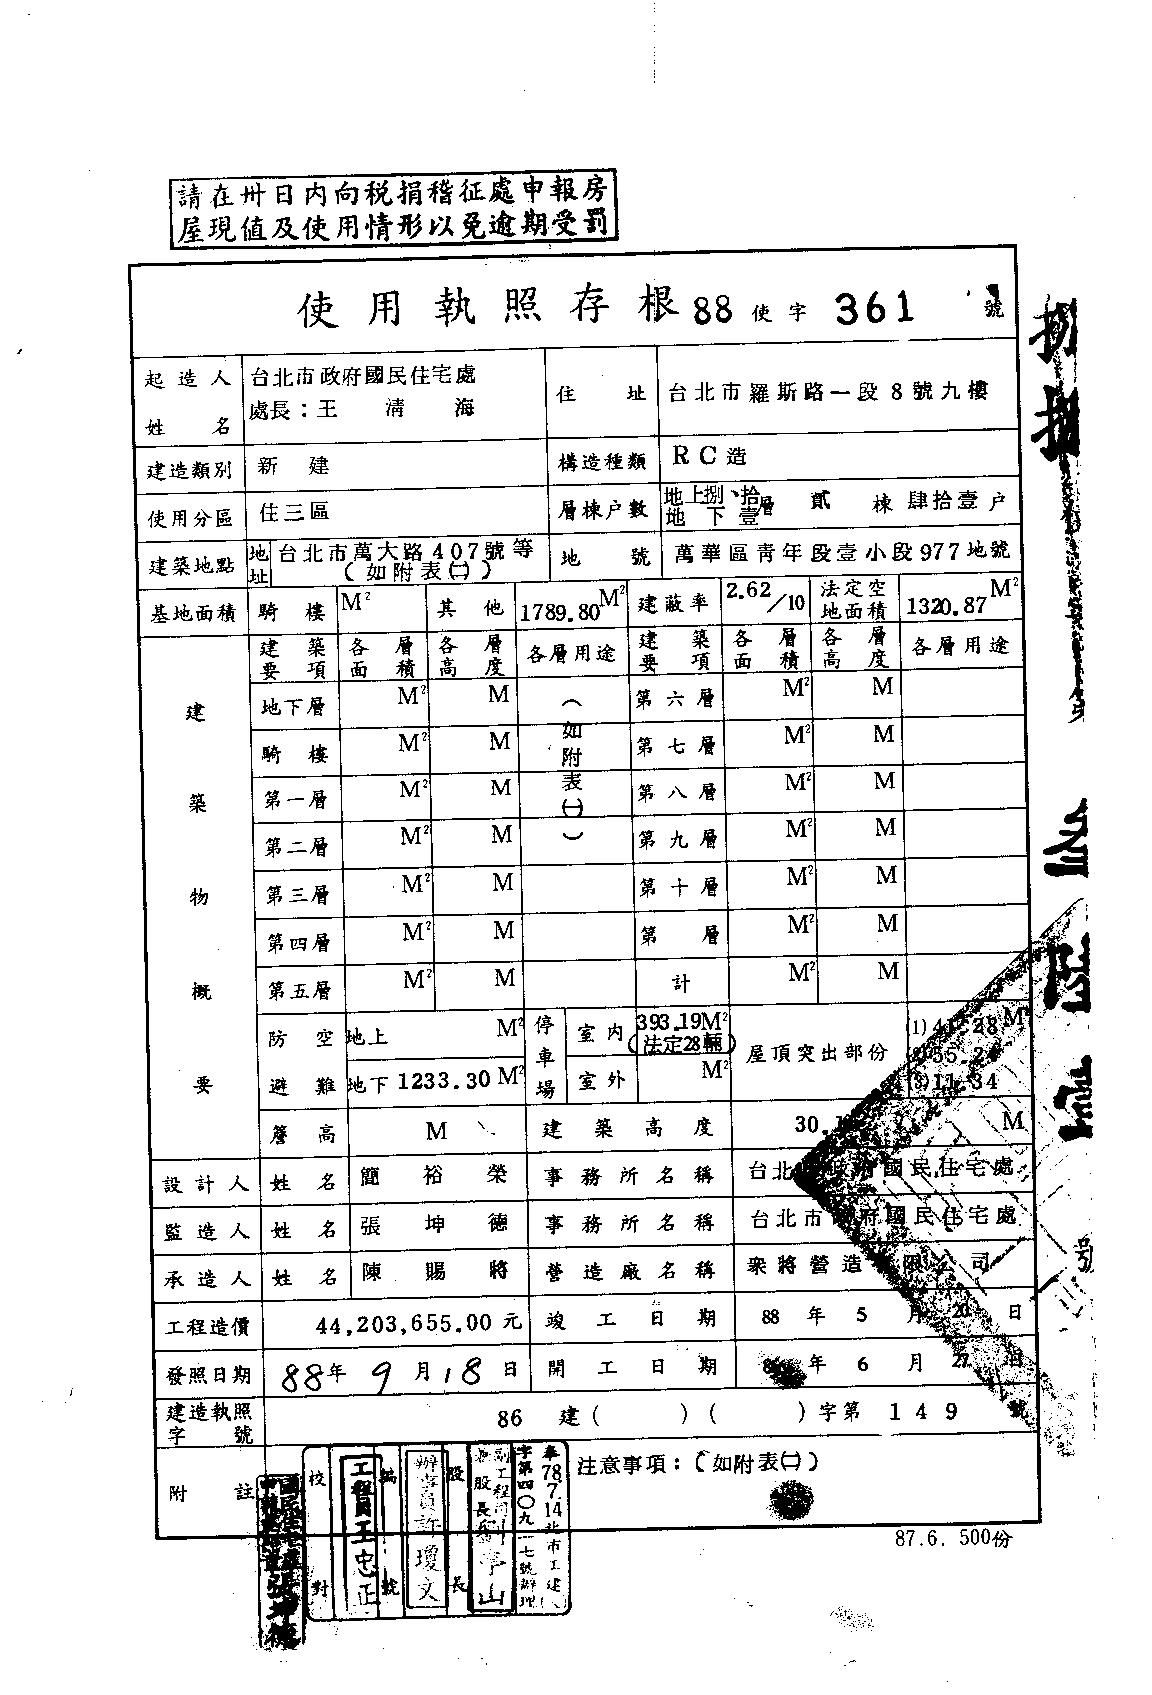 請在卅日內向稅捐稽征處申報房
屋現值及使用情形以免逾期受罰
使用執照存根 88 使字 361 號
起造人姓名 台北市政府國民住宅處
處長：王清海
住址 台北市羅斯路一段8號九樓
建造類別 新建 構造種類 RC造
使用分區 住三區 層棟户數 地上捌、拾層 地下壹層 貳棟 肆拾壹户
建築地點 地址 台北市萬大路407號等
(如附表㈡)
地號 萬華區青年段壹小段977地號
基地面積 騎樓 M² 其他 1789.80M² 建蔽率 2.62/10 法定空地面積 1320.87M²
建築物概要
建築要項 各層面積 各層高度 各層用途 建築要項 各層面積 各層高度 各層用途
地下層 M² M (如附表㈠) 第六層 M² M
騎樓 M² M 第七層 M² M
第一層 M² M 第八層 M² M
第二層 M² M 第九層 M² M
第三層 M² M 第十層 M² M
第四層 M² M 第 層 M² M
第五層 M² M 計 M² M
防空避難 地上 M² 停車場 室內 393.19M² (法定28輛) 屋頂突出部份 (1)41.28 M²
地下 1233.30 M² 室外 M² (3)11.34
簷高 M 建築高度 30. M
設計人 姓名 簡裕榮 事務所名稱 台北市政府國民住宅處
監造人 姓名 張坤德 事務所名稱 台北市政府國民住宅處
承造人 姓名 陳賜將 營造廠名稱 眾將營造 限公司
工程造價 44,203,655.00元 竣工日期 88年5月20日
發照日期 88年9月18日 開工日期 年6月27日
建造執照字號 86建( )( )字第149號
附註 注意事項：(如附表㈡)
87.6. 500份
校對 工程員王忠正
編號 辦事員許瓊文
股長
奉78.7.14北市工建
字第四〇九一七號辦理
張坤德
捌捌
叁陸壹
號